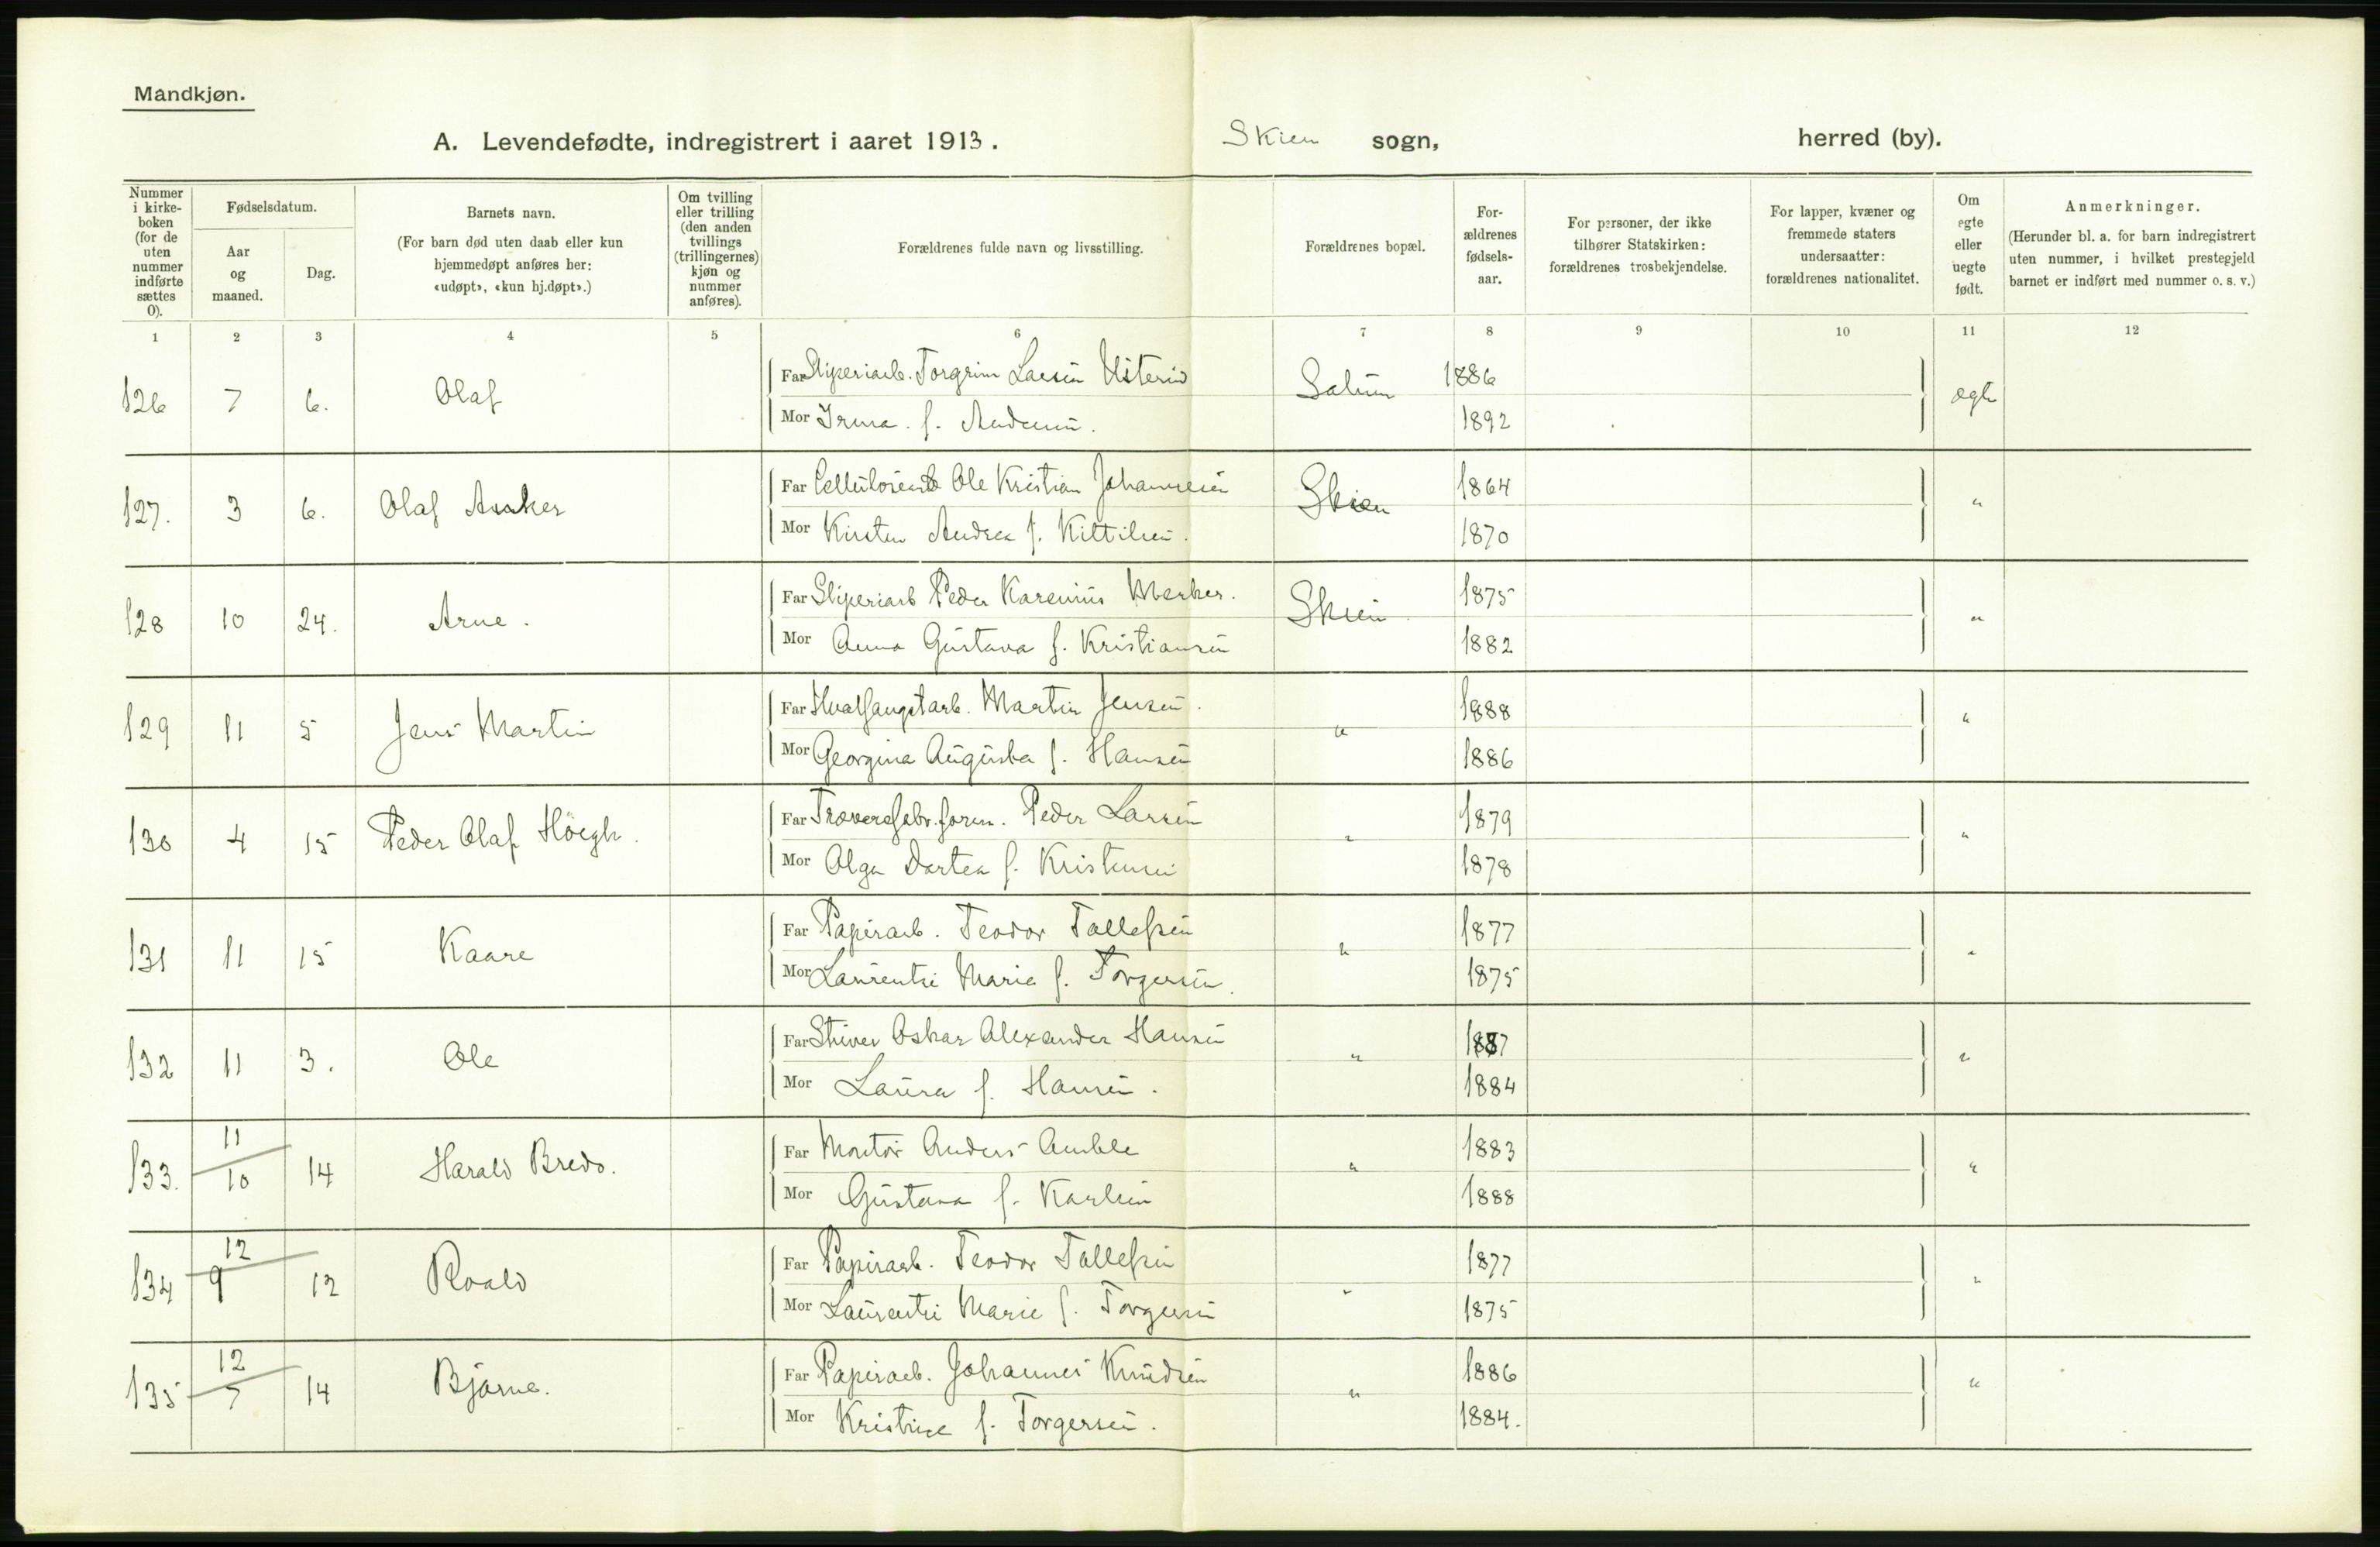 Mandkjøn.
A. Levendefødte, indregistrert i aaret 1913. Skien sogn, herred (by).
Nummer i kirke-boken (for de uten nummer indførte sættes 0).
Fødselsdatum.
Aar og maaned.
Dag.
Barnets navn.
(For barn død uten daab eller kun hjemmedøpt anføres her: «udøpt», «kun hj.døpt».)
Om tvilling eller trilling (den anden tvillings (trillingernes) kjøn og nummer anføres).
Forældrenes fulde navn og livsstilling.
Forældrenes bopæl.
For-ældrenes fødsels-aar.
For personer, der ikke tilhører Statskirken: forældrenes trosbekjendelse.
For lapper, kvæner og fremmede staters undersaatter: forældrenes nationalitet.
Om egte eller uegte født.
Anmerkninger.
(Herunder bl. a. for barn indregistrert uten nummer, i hvilket prestegjeld barnet er indført med nummer o. s. v.)
1 2 3 4 5 6 7 8 9 10 11 12
126 7 6. Olaf Far Sliperiarb. Torgrim Larsen Solum 1886 ægte
Mor Irma f. 1892
127. 3 6. Olaf Anker Far Ole Kristian Johannesen Skien 1864 "
Mor Kirsten Andrea f. Kittilsen. 1870
128 10 24. Arne. Far Sliperiarb Peder Karenius Merker. Skien 1875 "
Mor Anna Gustava f. Kristiansen 1882
129 11 5 Jens Martin Far Hvalfangstarb. Martin Jensen. " 1888 "
Mor Georgine Augusta f. Hansen 1886
130 4 15 Peder Olaf Höegh. Far Trævarefabr.form. Peder Larsen " 1879 "
Mor Olga Dortea f. Kristensen 1878
131 11 15 Kaare Far Papirarb. Teodor Tollefsen " 1877 "
Mor Laurentse Marie f. Torgersen. 1875
132 11 3. Ole Far Skriver Oskar Alexander Hansen " 1887 "
Mor Laura f. Hansen. 1884
133. 11 10 14 Harald Bredo. Far Montör Anders Amble " 1883 "
Mor Gustava f. Karlsen 1888
134 12 9 12 Roald Far Papirarb. Teodor Tollefsen " 1877 "
Mor Laurentse Marie f. Torgersen 1875
135 12 7 14 Bjarne. Far Papirarb. Johannes Knudsen " 1886 "
Mor Kristine f. Torgersen. 1884.